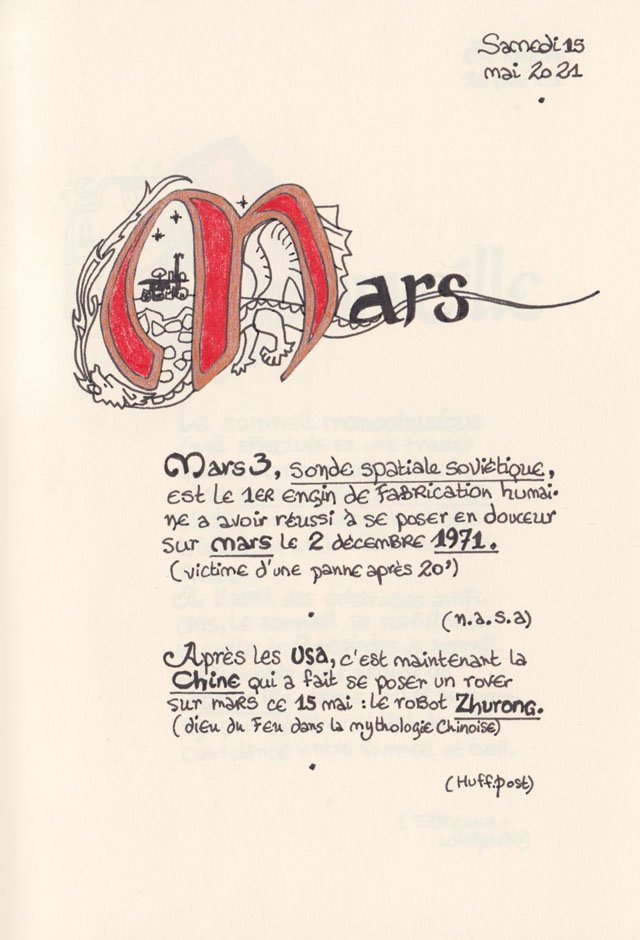 Samedi 15
mai 2021
.
Mars
Mars 3, sonde spatiale soviétique,
est le 1er engin de fabrication humai-
ne a avoir réussi à se poser en douceur
sur mars le 2 décembre 1971.
(victime d'une panne après 20')
.
(n.a.s.a)
Après les USA, c'est maintenant la
Chine qui a fait se poser un rover
sur mars ce 15 mai : le robot Zhurong.
(dieu du feu dans la mythologie Chinoise)
.
(Huff.post)